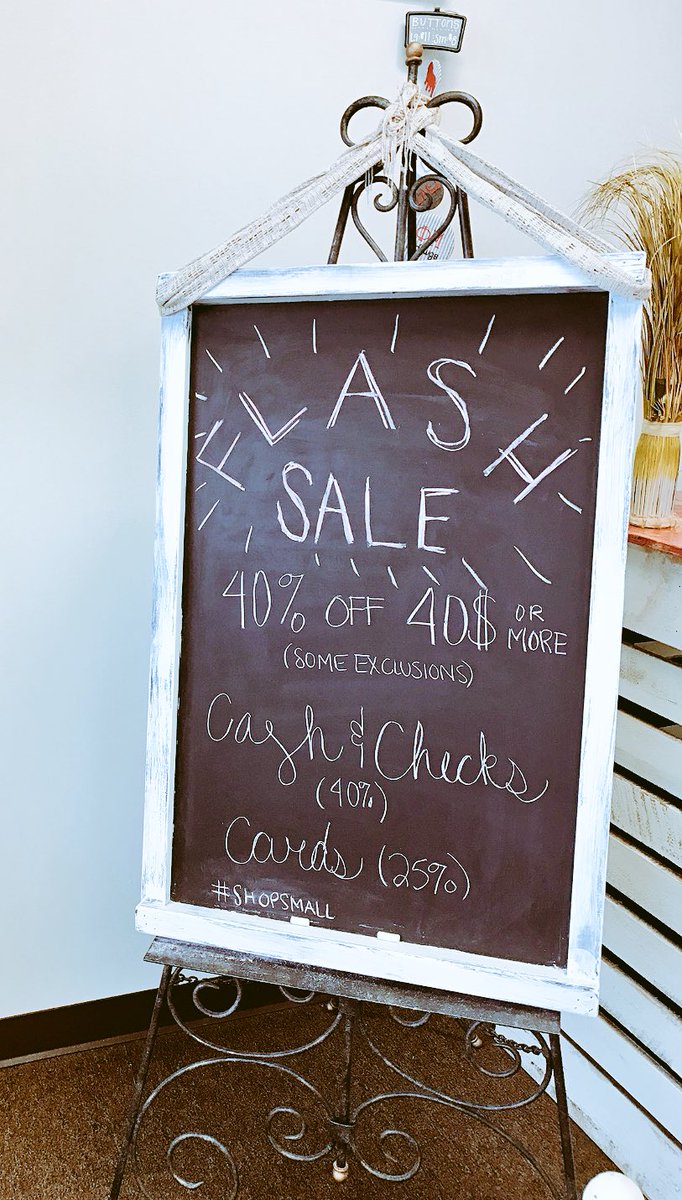 BUTTONS
FLASH
SALE
40% OFF 40$ OR MORE
(SOME EXCLUSIONS)
Cash & Checks
(40%)
Cards (25%)
#SHOPSMALL